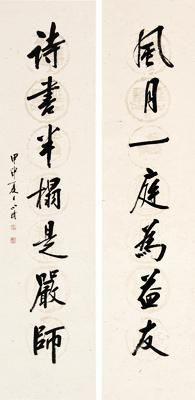 風月一庭為益友
詩書半榻是嚴師
甲申夏